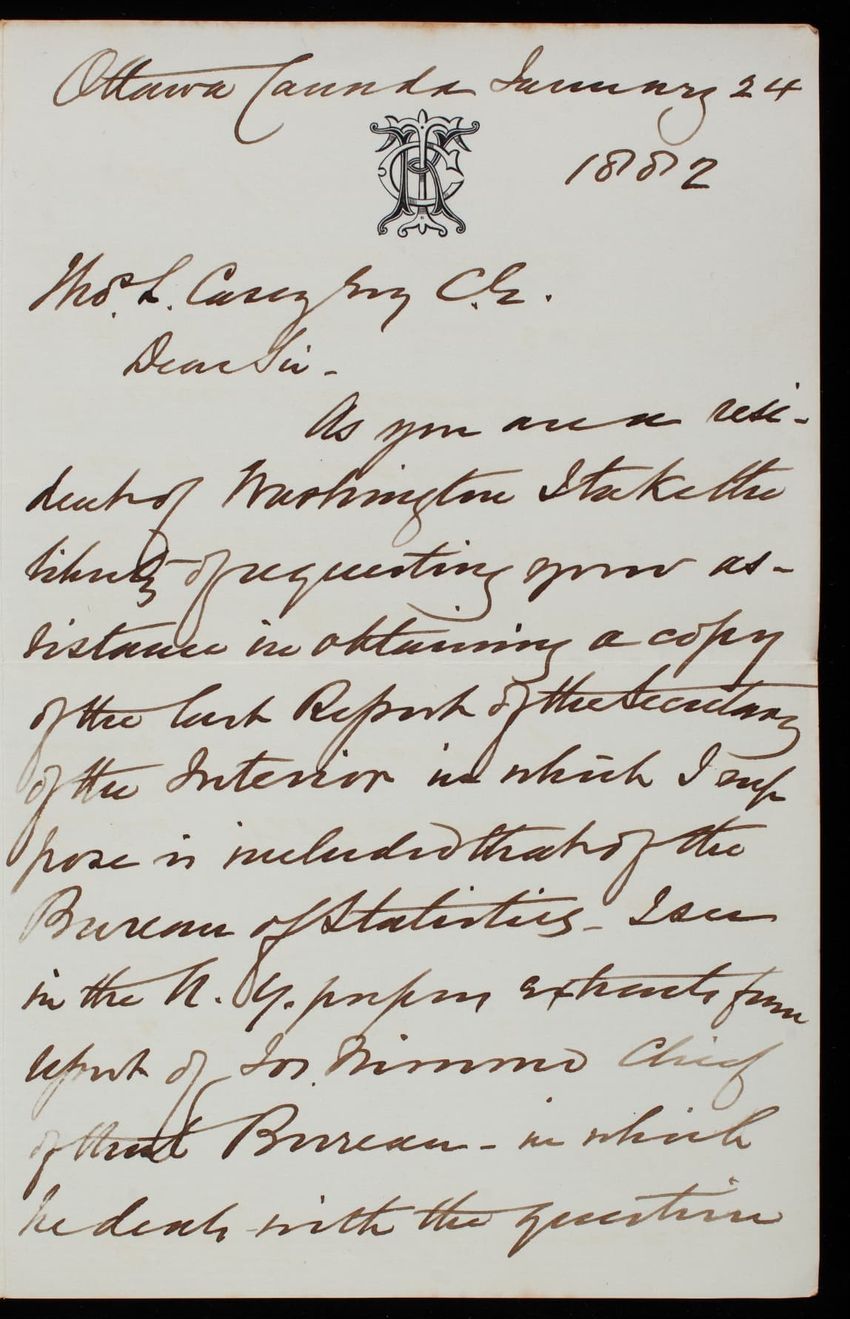 Ottawa Canada January 24
1882
Thos. L. Casey Esq C.E.
Dear Sir -
As you are a resi-
dent of Washington I take the
liberty of requesting your as-
sistance in obtaining a copy
of the last Report of the Secretary
of the Interior in which I sup
pose is included that of the
Bureau of Statistics - I see
in the N. Y. papers extracts from
report of Jos. Nimmo Chief
of that Bureau - in which
he deals with the question